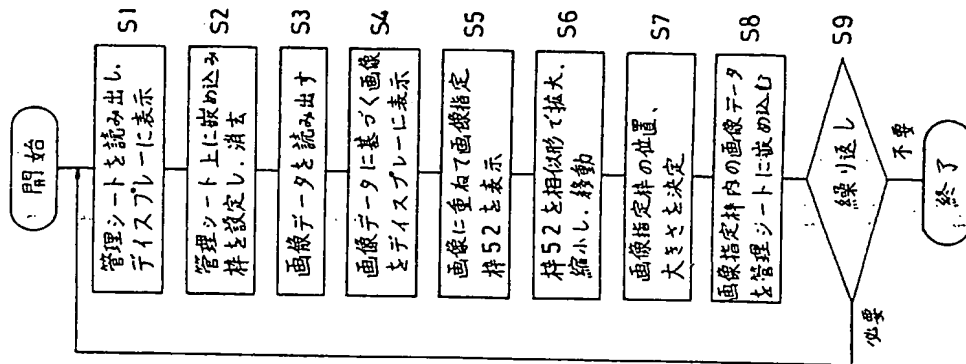 開始
管理シートを読み出し、
ディスプレーに表示
S1
管理シート上に嵌め込み
枠を設定し、消去
S2
画像データを読み出す
S3
画像データに基づく画像
をディスプレーに表示
S4
画像に重ねて画像指定
枠52を表示
S5
枠52を相似形で拡大、
縮小し、移動
S6
画像指定枠の位置、
大きさを決定
S7
画像指定枠内の画像データ
を管理シートに嵌め込む
S8
繰り返し
S9
必要
不要
終了